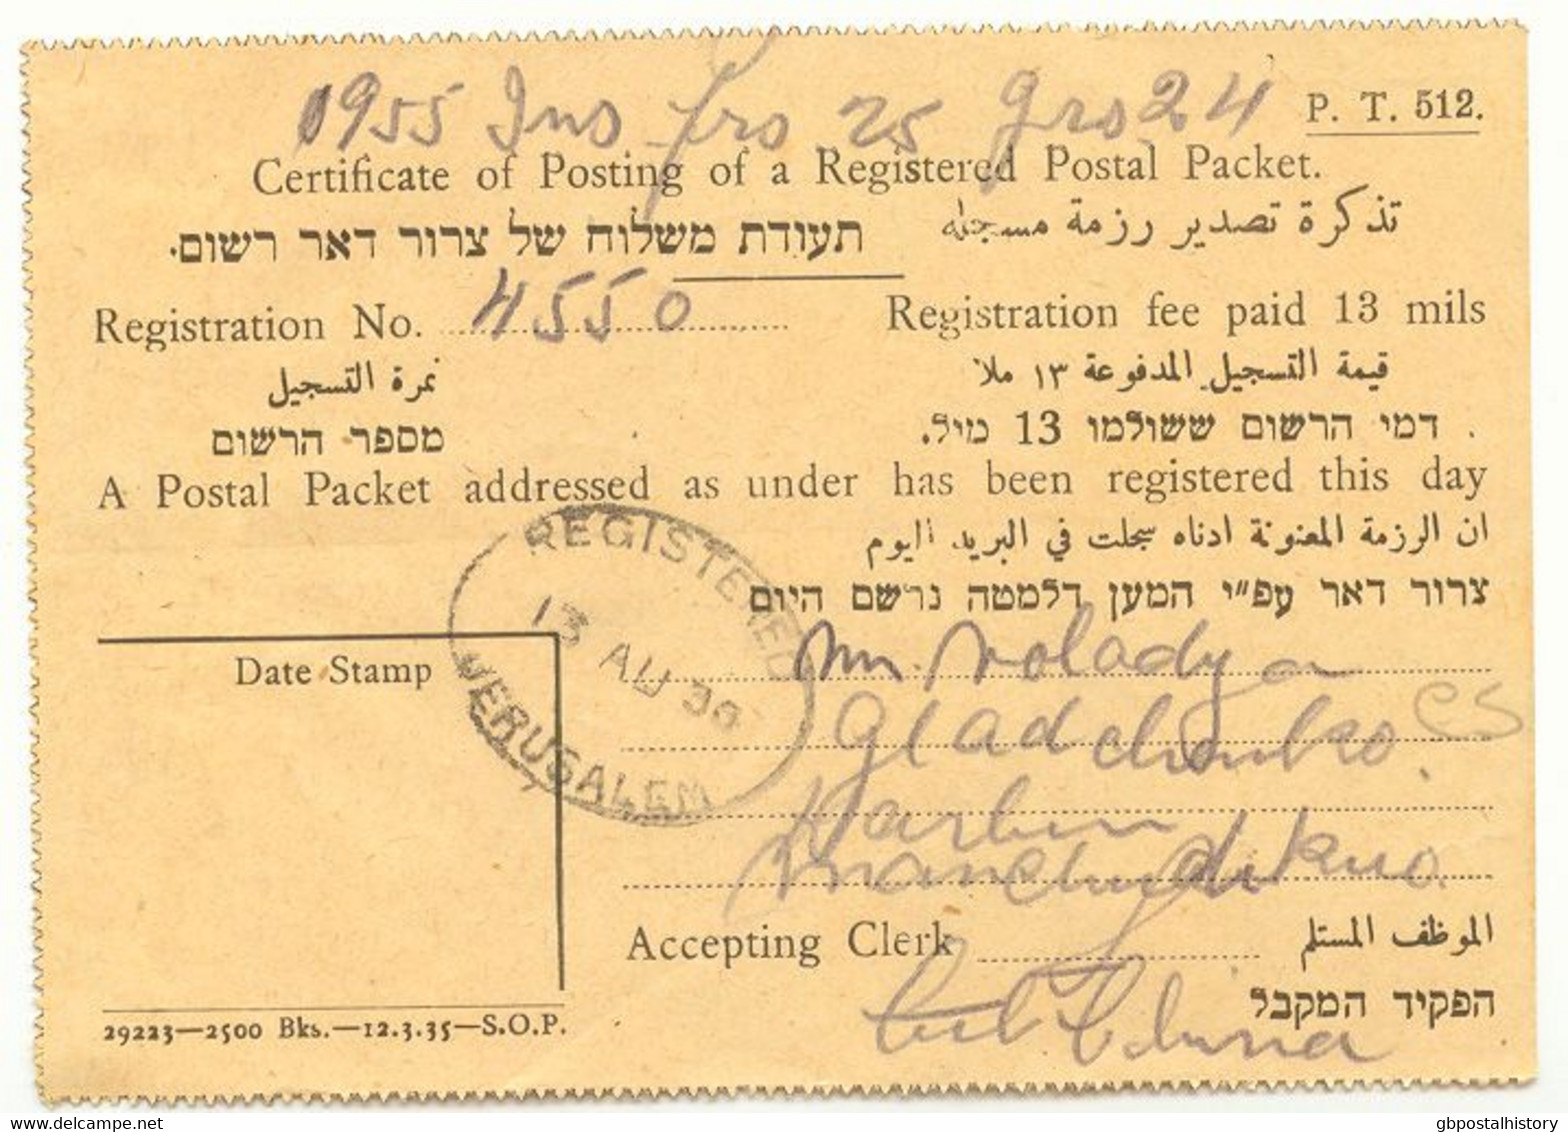 1955 Ins frs 25 grs 24
P. T. 512.
Certificate of Posting of a Registered Postal Packet.
تذكرة تصدير رزمة مسجلة
תעודת משלוח של צרור דאר רשום.
Registration No. 4550
Registration fee paid 13 mils
نمرة التسجيل
قيمة التسجيل المدفوعة ١٣ ملا
מספר הרשום
דמי הרשום ששולמו 13 מיל.
A Postal Packet addressed as under has been registered this day
ان الرزمة المعنونة ادناه سجلت في البريد اليوم
צרור דאר עפ״י המען דלמטה נרשם היום
REGISTERED
13 AU 36
JERUSALEM
Date Stamp
Gladchenko
Harbin
Accepting Clerk
الموظف المستلم
הפקיד המקבל
China
29223—2500 Bks.—12.3.35—S.O.P.
www.delcampe.net
gbpostalhistory